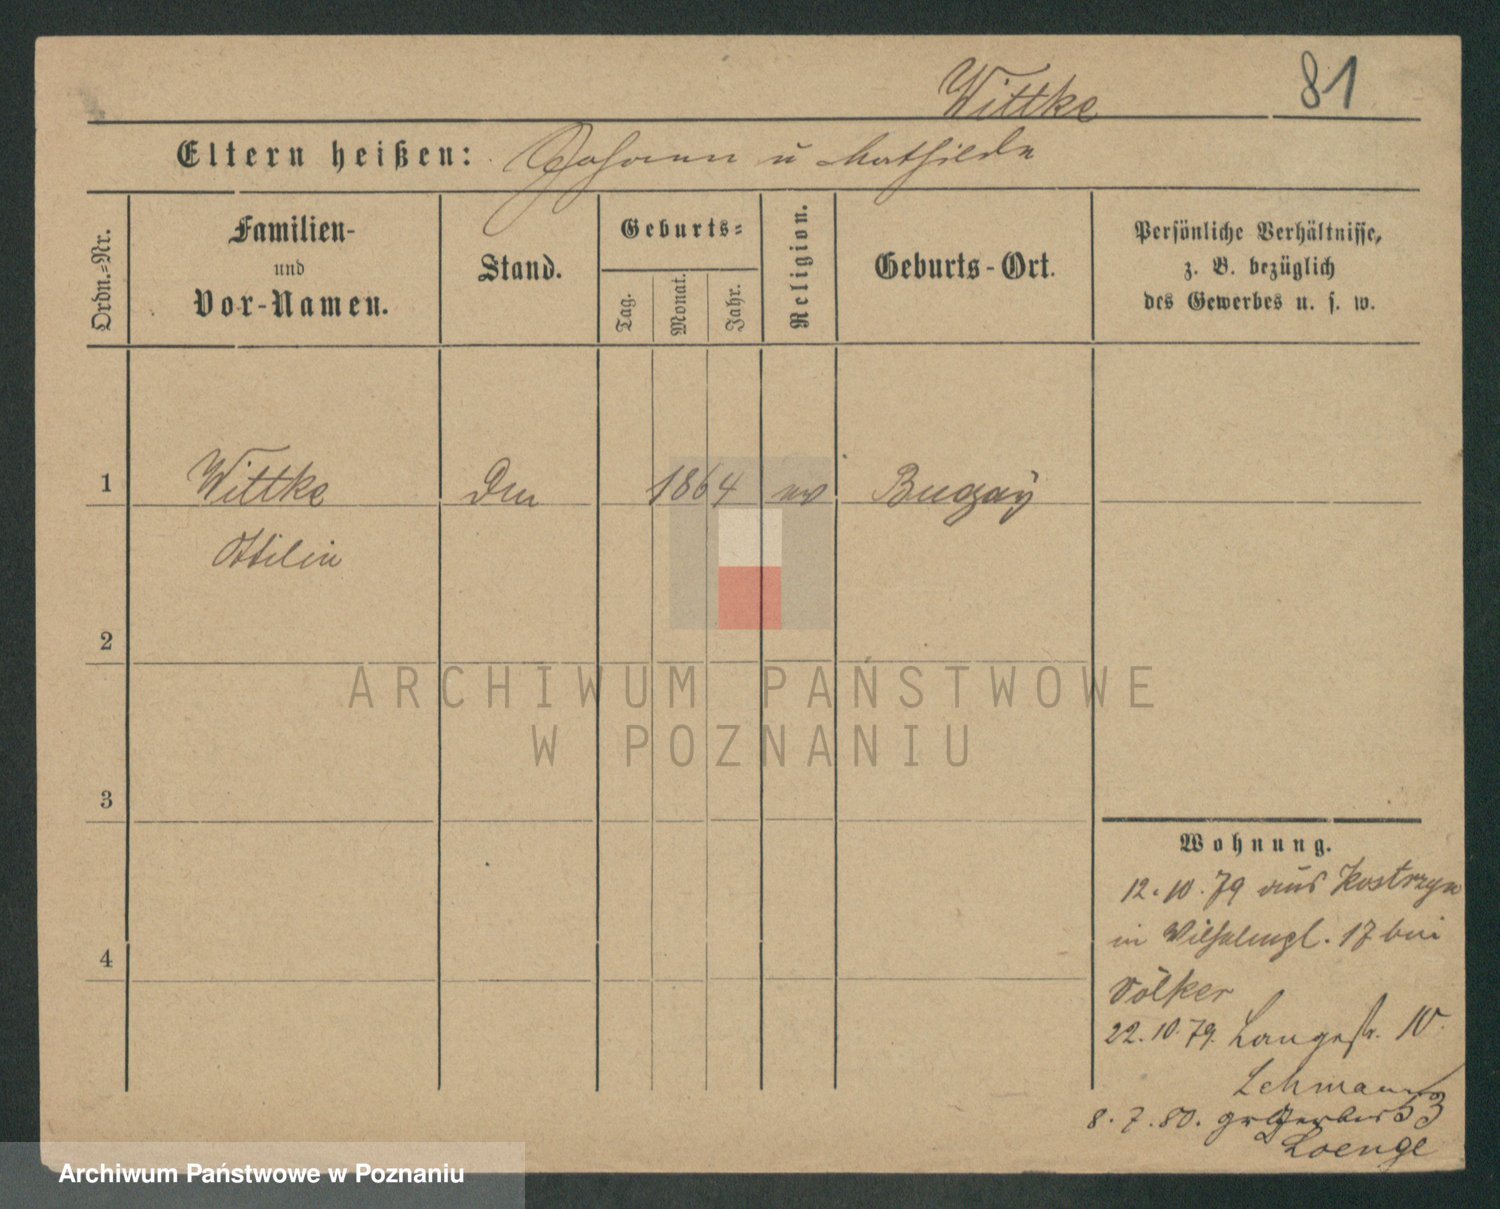 Wittke 81
Eltern heißen: Johann u Mathilde
Ordn.-Nr.
Familien-
und
Vor-Namen.
Stand.
Geburts-
Tag.
Monat.
Jahr.
Religion.
Geburts-Ort.
Persönliche Verhältnisse,
z. B. bezüglich
des Gewerbes u. s. w.
1 Wittke 1864 ev Bugay
Ottilie
2
3
4
Wohnung.
12.10.79 aus Kostrzyn
in 17 bei
Völker
22.10.79. Langestr. 10.
Lehmann
8.7.80. gr Gerber 53
Loenge
ARCHIWUM PAŃSTWOWE
W POZNANIU
Archiwum Państwowe w Poznaniu